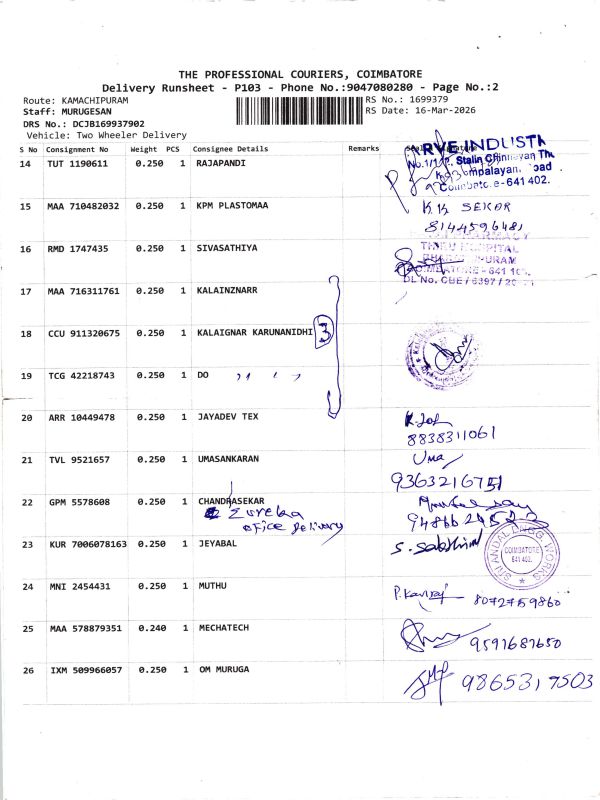 THE PROFESSIONAL COURIERS, COIMBATORE
Delivery Runsheet - P103 - Phone No.:9047080280 - Page No.:2
Route: KAMACHIPURAM
RS No.: 1699379
Staff: MURUGESAN
RS Date: 16-Mar-2026
DRS No.: DCJB169937902
Vehicle: Two Wheeler Delivery
S No Consignment No Weight PCS Consignee Details Remarks
14 TUT 1190611 0.250 1 RAJAPANDI
ARVE INDUSTR
No.1/1 Stalin Chinnayan Th
Coimbatore - 641 402.
15 MAA 710482032 0.250 1 KPM PLASTOMAA K.K SEKAR
8144596481
16 RMD 1747435 0.250 1 SIVASATHIYA
PHARMACY
HOSPITAL
PURAM
COIMBATORE - 641
DL No. CBE / 6397 / 20
17 MAA 716311761 0.250 1 KALAINZNARR
18 CCU 911320675 0.250 1 KALAIGNAR KARUNANIDHI 3
19 TCG 42218743 0.250 1 DO , , , ,
20 ARR 10449478 0.250 1 JAYADEV TEX
8838311061
21 TVL 9521657 0.250 1 UMASANKARAN Uma
9363216751
22 GPM 5578608 0.250 1 CHANDRASEKAR
Eureka
office delivery
23 KUR 7006078163 0.250 1 JEYABAL
SRI ANDAL ENGG. WORKS
COIMBATORE
641 402.
24 MNI 2454431 0.250 1 MUTHU P. Kaviraj 8072759860
25 MAA 578879351 0.240 1 MECHATECH 9591687650
26 IXM 509966057 0.250 1 OM MURUGA 9865317503